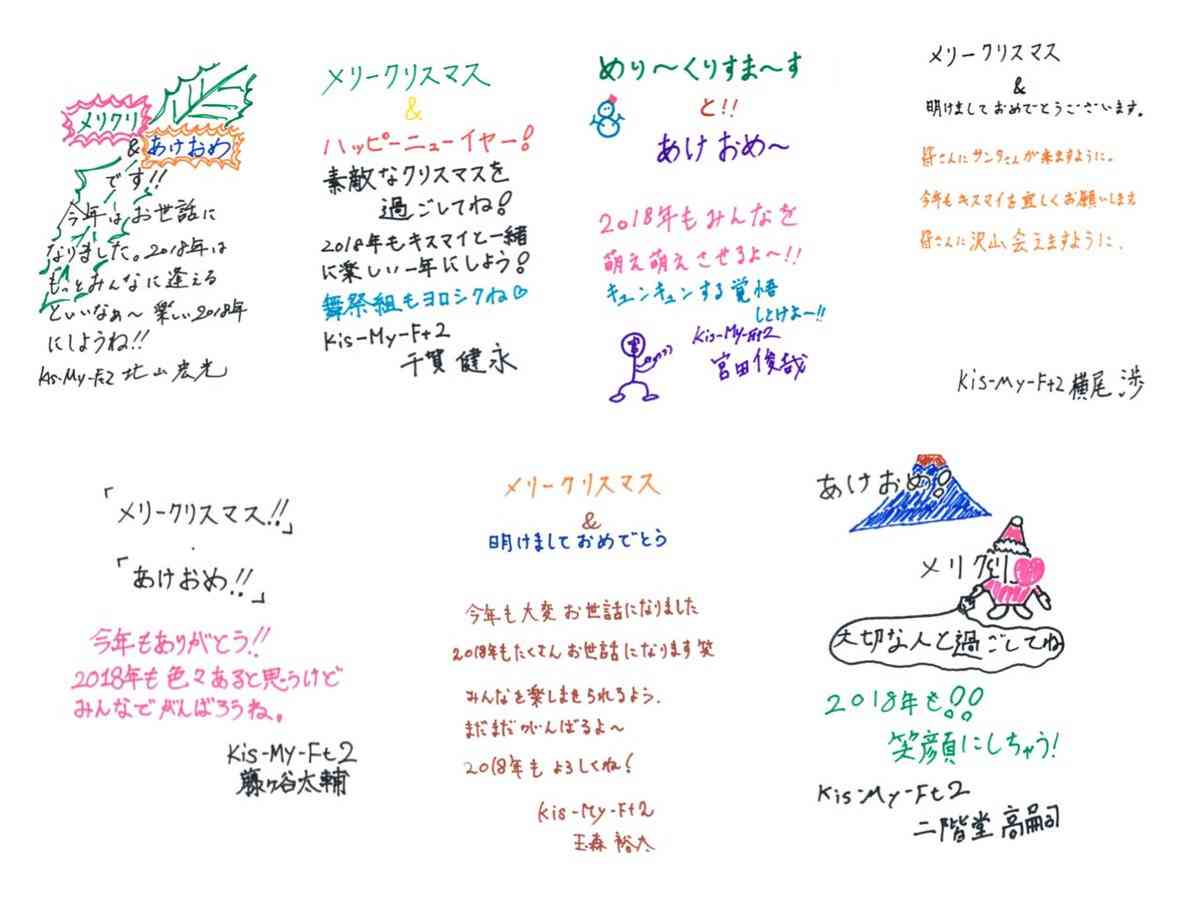 メリクリ
& あけおめ
です!!
今年はお世話に
なりました。2018年は
もっとみんなに逢える
といいなぁ〜 楽しい2018年
にしようね!!
Kis-My-Ft2 北山宏光
メリークリスマス
&
ハッピーニューイヤー!
素敵なクリスマスを
過ごしてね!
2018年もキスマイと一緒
に楽しい一年にしよう!
舞祭組もヨロシクね♡
Kis-My-Ft2
千賀健永
めり〜くりすま〜す
と!!
あけおめ〜
2018年もみんなを
萌え萌えさせるよ〜!!
キュンキュンする覚悟
しとけよ〜!!
Kis-My-Ft2
宮田俊哉
メリークリスマス
&
明けましておめでとうございます。
皆さんにサンタさんが来ますように。
今年もキスマイを宜しくお願いします
皆さんに沢山会えますように。
Kis-My-Ft2 横尾渉
「メリークリスマス!!」
「あけおめ!!」
今年もありがとう!!
2018年も色々あると思うけど
みんなでがんばろうね。
Kis-My-Ft2
藤ヶ谷太輔
メリークリスマス
&
明けましておめでとう
今年も大変お世話になりました
2018年もたくさんお世話になります笑
みんなを楽しませられるよう、
まだまだがんばるよ〜
2018年もよろしくね!
Kis-My-Ft2
玉森裕太
あけおめ!
メリクリ
大切な人と過ごしてね
2018年も!!
笑顔にしちゃう!
Kis-My-Ft2
二階堂高嗣